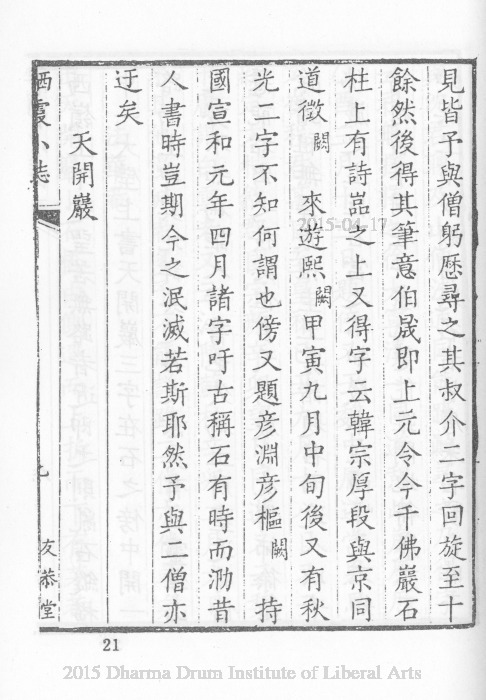 見皆予與僧躬歷尋之其叔介二字回旋至十
餘然後得其筆意伯晟即上元令今千佛巖石
柱上有詩嵓之上又得字云韓宗厚段與京同
道徵闕來遊熙闕甲寅九月中旬後又有秋
光二字不知何謂也傍又題彦淵彦樞闕持
國宣和元年四月諸字吁古稱石有時而泐昔
人書時豈期今之泯滅若斯耶然予與二僧亦
迂矣
天開巖
栖霞小志
九
友恭堂
21
2015-04-17
2015 Dharma Drum Institute of Liberal Arts